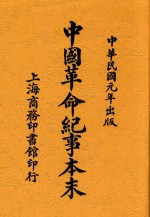 中華民國元年出版
中國革命紀事本末
上海商務印書館印行